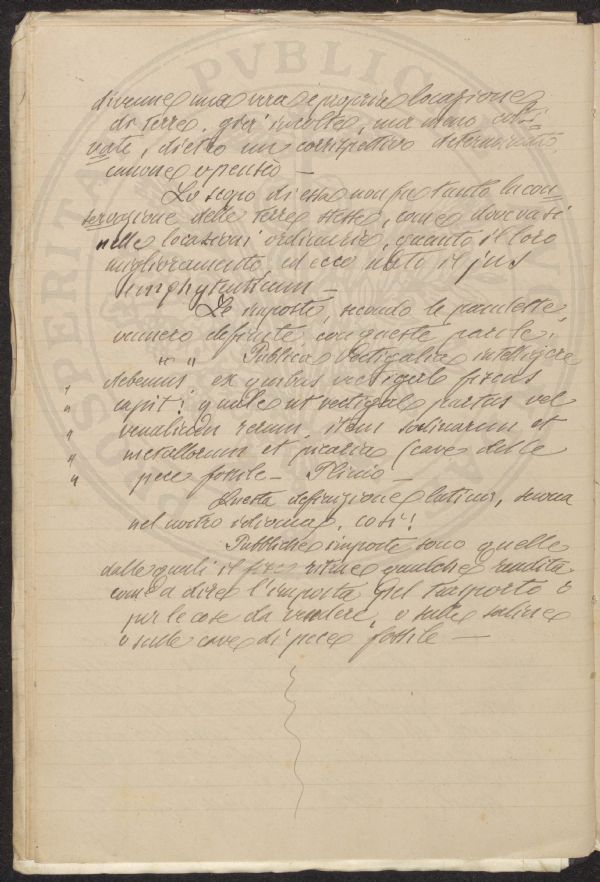 divenne una vera e propria locazione
di terre, già incolte, ma meno colti-
vate, dietro un corrispettivo determinato,
canone o pensio —
Lo scopo di essa non fu tanto la con-
servazione delle terre stesse, come dovevasi
nelle locazioni ordinarie, quanto il loro
miglioramento, ed ecco nato il jus
emphyteuticum —
Le imposte, secondo le pandette,
vennero definite, con queste parole:
" " Publica Vectigalia intelligere
" debemus, ex quibus vectigal fiscus
" capit; quale ut vectigal portus vel
" venalium rerum, item salinarum et
" metallorum et picaria (cave delle
" pece fossile — Plinio —
Questa definizione latina, suona
nel nostro idioma, così:
Pubbliche imposte sono quelle
dalle quali il fisco ritrae qualche rendita
come a dire l'imposta pel trasporto o
per le cose da vendere, o sulle saline
o sulle cave di pece fossile —
PROSPERITA PVBLICA